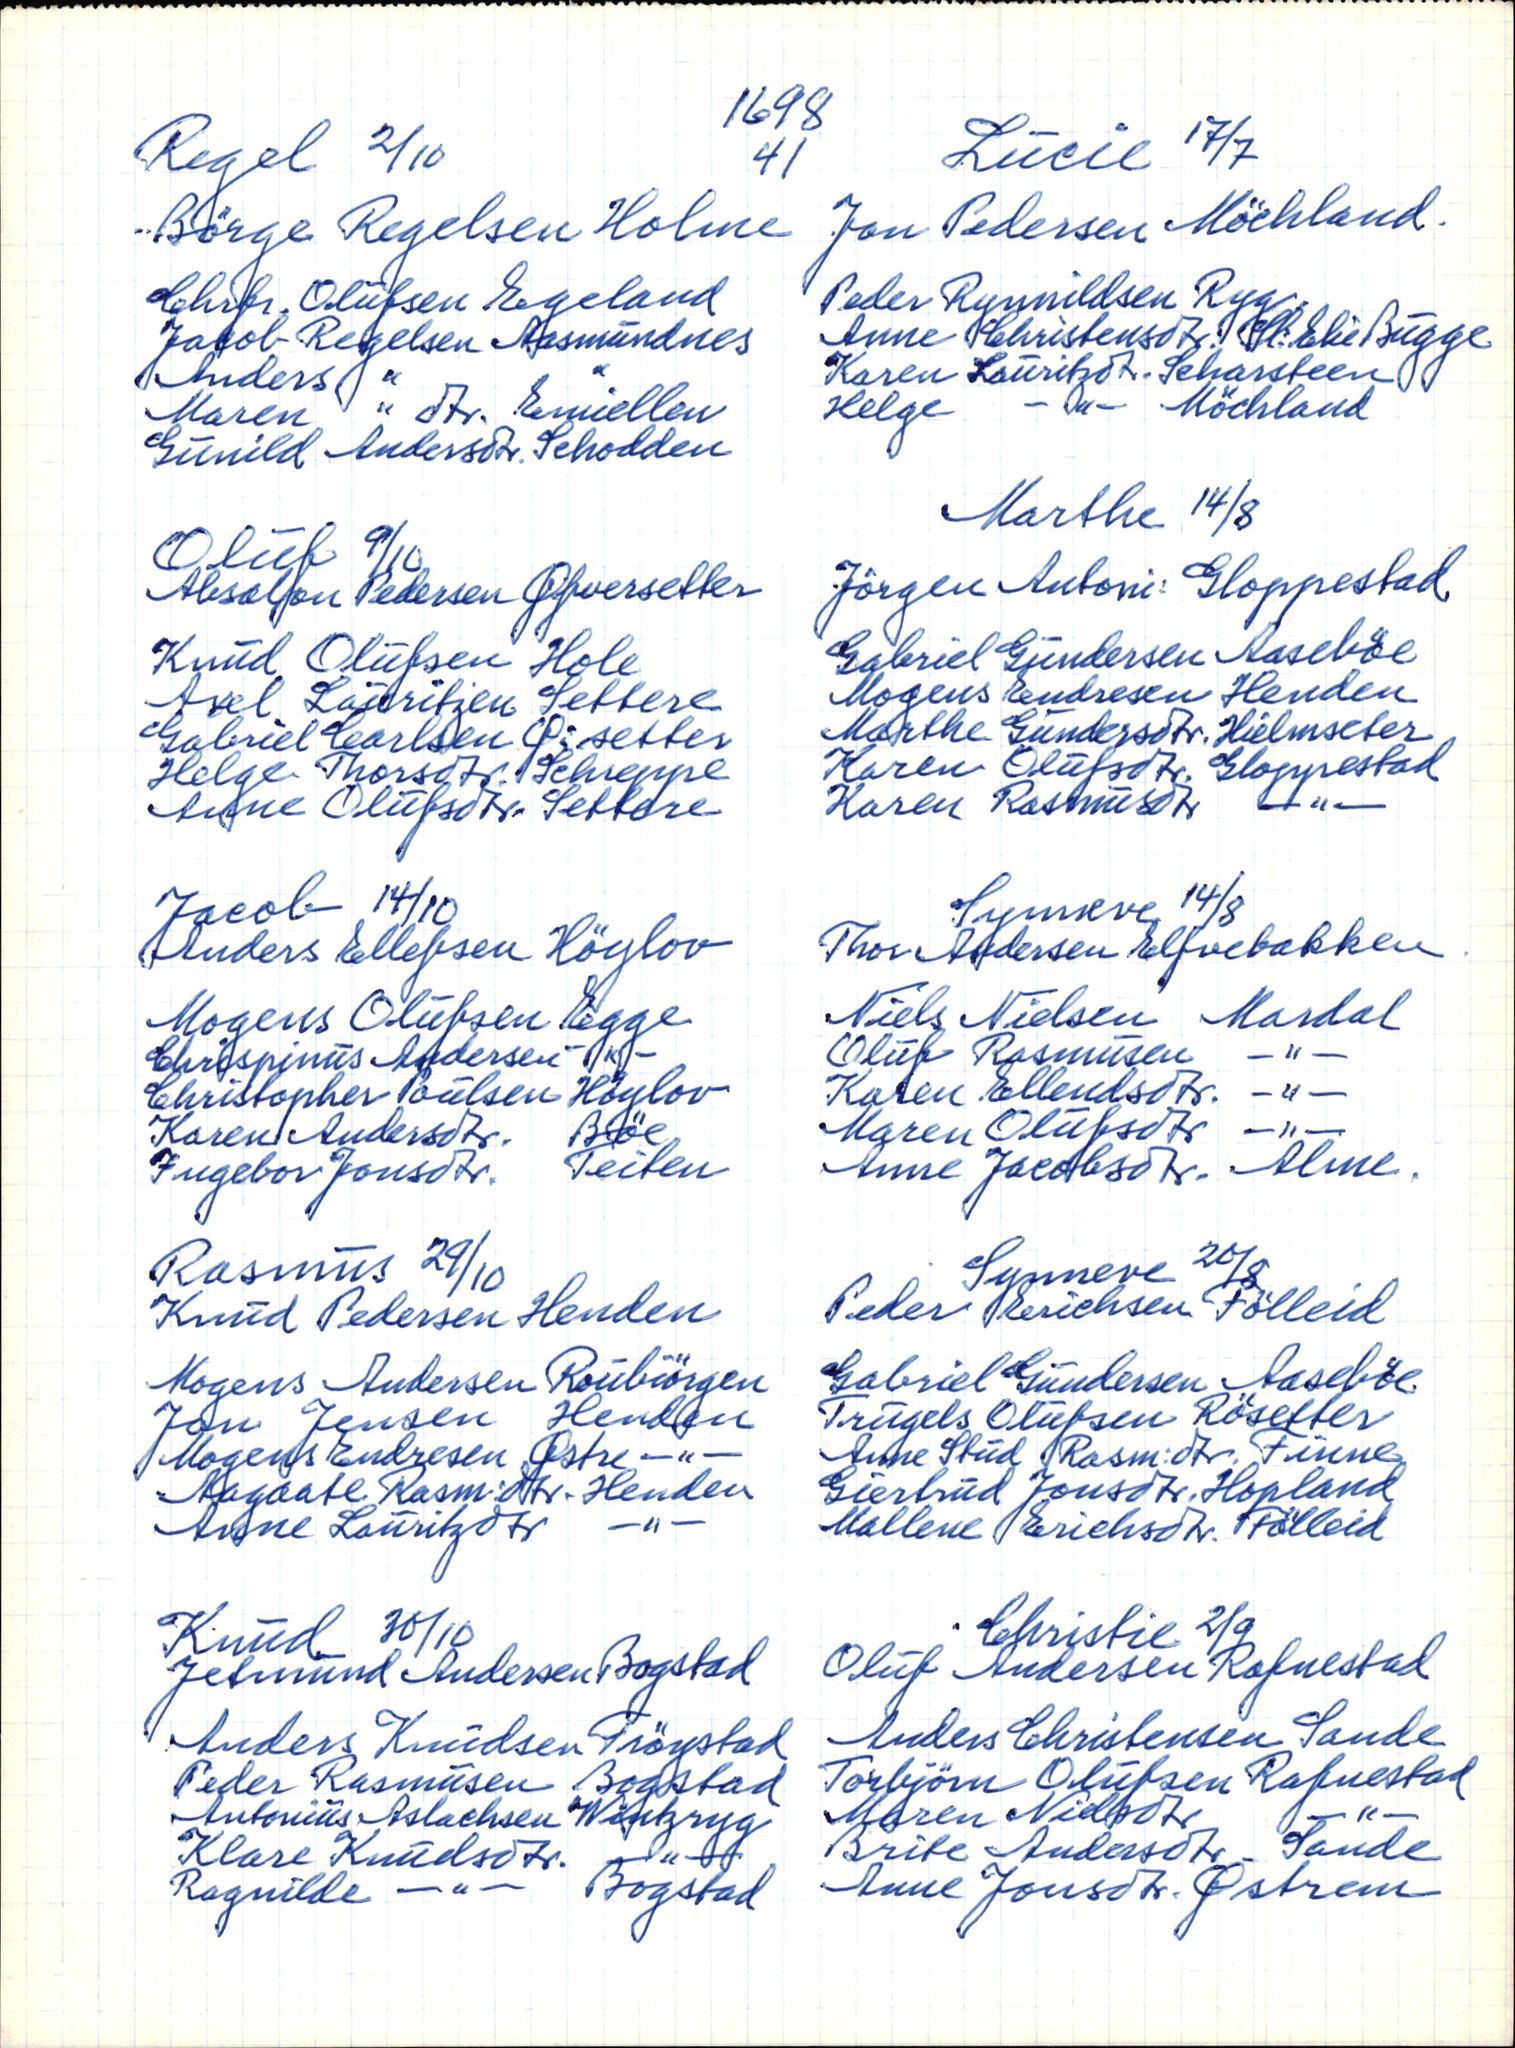 1698
41
Regel 2/10
Börge Regelsen Holme
Chrfr. Olufsen Egeland
Jacob Regelsen Aasmundnes
Anders " "
Maren " dtr. Emiellen
Gunild Andersdtr. Schodden
Oluf 9/10
Absalon Pedersen Øfversetter
Knud Olufsen Hole
Axel Lauritzen Settere
Gabriel Carlsen Ø:setter
Helge Thorsdtr. Schreppe
Anne Olufsdtr. Settere
Jacob 14/10
Anders Ellefsen Höylov
Mogens Olufsen Egge
Chrispinus Andersen -"-
Christopher Poulsen Höylov
Karen Andersdtr. Böe
Ingebor Jonsdtr. Teiten
Rasmus 29/10
Knud Pedersen Henden
Mogens Andersen Roubiörgen
Jon Jensen Henden
Mogens Endresen Østre -"-
Aagaate Rasm:dtr. Henden
Anne Lauritzdtr -"-
Knud 30/10
Jetmund Andersen Bogstad
Anders Knudsen Tröystad
Peder Rasmusen Bogstad
Antonius Aslachsen Wentzryg
Klare Knudsdtr. -"-
Ragnilde -"- Bogstad
Lucie 17/7
Jon Pedersen Möchland.
Peder Rynnildsen Ryg.
Anne Christensdtr. Sl. Elie Bugge
Karen Lauritzdtr. Scharsteen
Helge -"- Möchland
Marthe 14/8
Jörgen Antoni: Gloppestad
Gabriel Gundersen Aaseböe
Mogens Endresen Henden
Marthe Gundersdtr. Hielmseter
Karen Olufsdtr. Gloppestad
Karen Rasmusdtr -"-
Synneve 14/8
Thor Andersen Elfvebakken
Niels Nielsen Mardal
Oluf Rasmusen -"-
Karen Ellendsdtr. -"-
Maren Olufsdtr -"-
Anne Jacobsdtr. Alme.
Synneve 20/8
Peder Erichsen Fölleid
Gabriel Gundersen Aaseböe
Trugels Olufsen Rösetter
Anne Stud Rasm:dtr. Finne
Giertrud Jonsdtr. Hopland
Mallene Erichsdtr. Fölleid
Christie 2/9
Oluf Andersen Rafnestad
Anders Christensen Sande
Torbjörn Olufsen Rafnestad
Maren Nielsdtr -"-
Brite Andersdtr. Sande
Anne Jonsdtr. Østrem